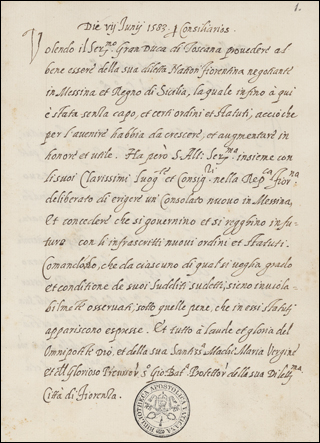 1.
Die vij Junij 1583. Consiliarios
Volendo il Ser.mo Gran Duca di Toscana provedere al
bene essere della sua diletta Nation' fiorentina negotiante
in Messina et Regno di Sicilia, la quale infino à qui
è stata senza capo, et certi ordini et statuti, acciò che
per l'avenire habbia da crescere, et augumentare in
honore et utile. Ha però S. Alt. Ser.ma insieme con
li suoi Clarissimi Luog.ti et Consig.li nella Rep.ca Fior.na
deliberato di erigere un' Consolato nuovo in Messina,
Et concedere che si governino et si regghino in fu-
turo con li infrascritti nuovi ordini et statuti.
Comandando, che da ciascuno di qual si voglia grado
et conditione de suoi sudditi sudetti, sieno inviola-
bilmente osservati, sotto quelle pene, che in essi statuti
appariscono espresse. Et tutto à laude et gloria del
Omnipotente Dio, et della sua Santiss.a Madre Maria Vergine
et del glorioso Precursor' s.o Gio: Bat.a Protettor' della sua Dilett.ma
Città di Fiorenza.
BIBLIOTHECA APOSTOLICA VATICANA